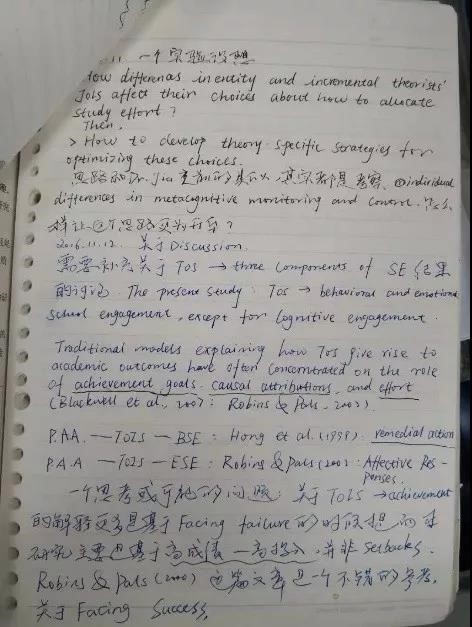 一个实验设想
How differences in entity and incremental theorists'
JOLs affect their choices about how to allocate
study effort?
Then,
> How to develop theory-specific strategies for
optimizing these choices.
思路和Dr. Jia 其实都是考察, ①individual
differences in metacognitive monitoring and control.
样让这个思路更为
2016.11.12. 关于Discussion.
需要补充关于TOS → three components of SE 结果
的讨论. The present study: TOS → behavioral and emotional
school engagement, except for cognitive engagement.
Traditional models explaining how TOS give rise to
academic outcomes have often concentrated on the role
of achievement goals, causal attributions, and effort
(Blackwell et al., 2007; Robins & Pals, 2002).
P.A.A. — TOIS — BSE: Hong et al. (1999). remedial action
P.A.A — TOIS — ESE: Robins & Pals (2002): Affective Res-
ponses.
一个思考或可能的问题: 关于TOIS → achievement
的解释更多是基于Facing failure的时候想而本
研究主要是基于高成绩—高投入, 并非Setbacks.
Robins & Pals (2002) 这篇文章是一个不错的参考,
关于Facing Success.